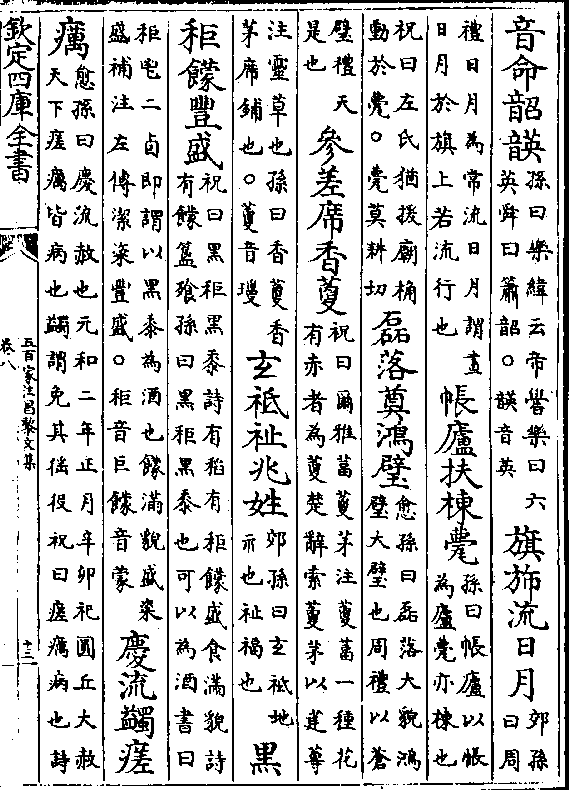 音命韶䪫
孫曰樂緯云帝嚳樂曰六
英舜曰簫韶○䪫音英
旗斾流日月
郊孫
曰周
禮日月為常流日月謂畫
日月於旗上若流行也
帳廬扶棟甍
孫曰帳廬以帳
為廬甍亦棟也
祝曰左氏猶援廟桷
動於甍○甍莫耕切
磊落奠鴻璧
愈孫曰磊落大貌鴻
璧大璧也周禮以蒼
璧禮天
是也
參差席香藑
祝曰爾雅葍藑茅注藑葍一種花
有赤者為藑楚辭索藑茅以莛蓴
注靈草也孫曰香藑香
茅席鋪也○藑音瓊
玄祗祉兆姓
郊孫曰玄祗地
示也祉福也
黑
秬饛豐盛
祝曰黑秬黑黍詩有稻有秬饛盛食滿貌詩
有饛簋飱孫曰黑秬黑黍也可以為酒書曰
秬鬯二卣即謂以黑黍為酒也饛滿貌盛粢
盛補注左傳潔粢豐盛○秬音巨饛音蒙
慶流蠲瘥
癘
愈孫曰慶流赦也元和二年正月辛卯祀圓丘大赦
天下瘥癘皆病也蠲謂免其徭役祝曰瘥癘病也詩
欽定四庫全書
五百家注昌黎文集
卷八
十二